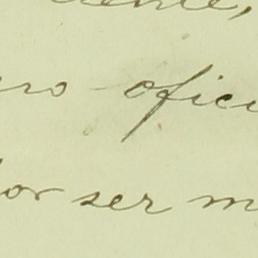 ente,
ero ofici
or ser m